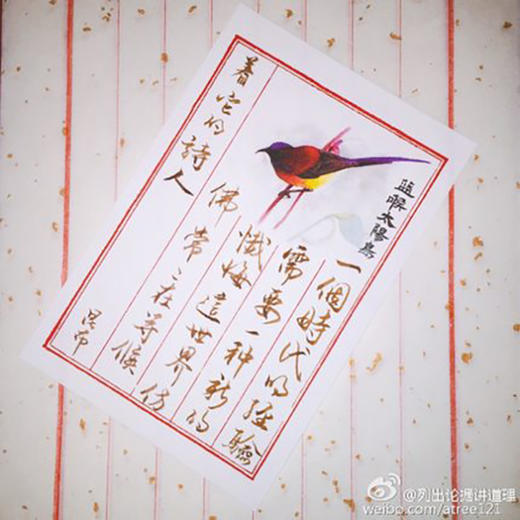 藍喉太陽鳥
一個時代的經驗
需要一種新的
懺悔這世界仿
佛常〻在等候
着它的詩人
@列出论据讲道理
weibo.com/atree121